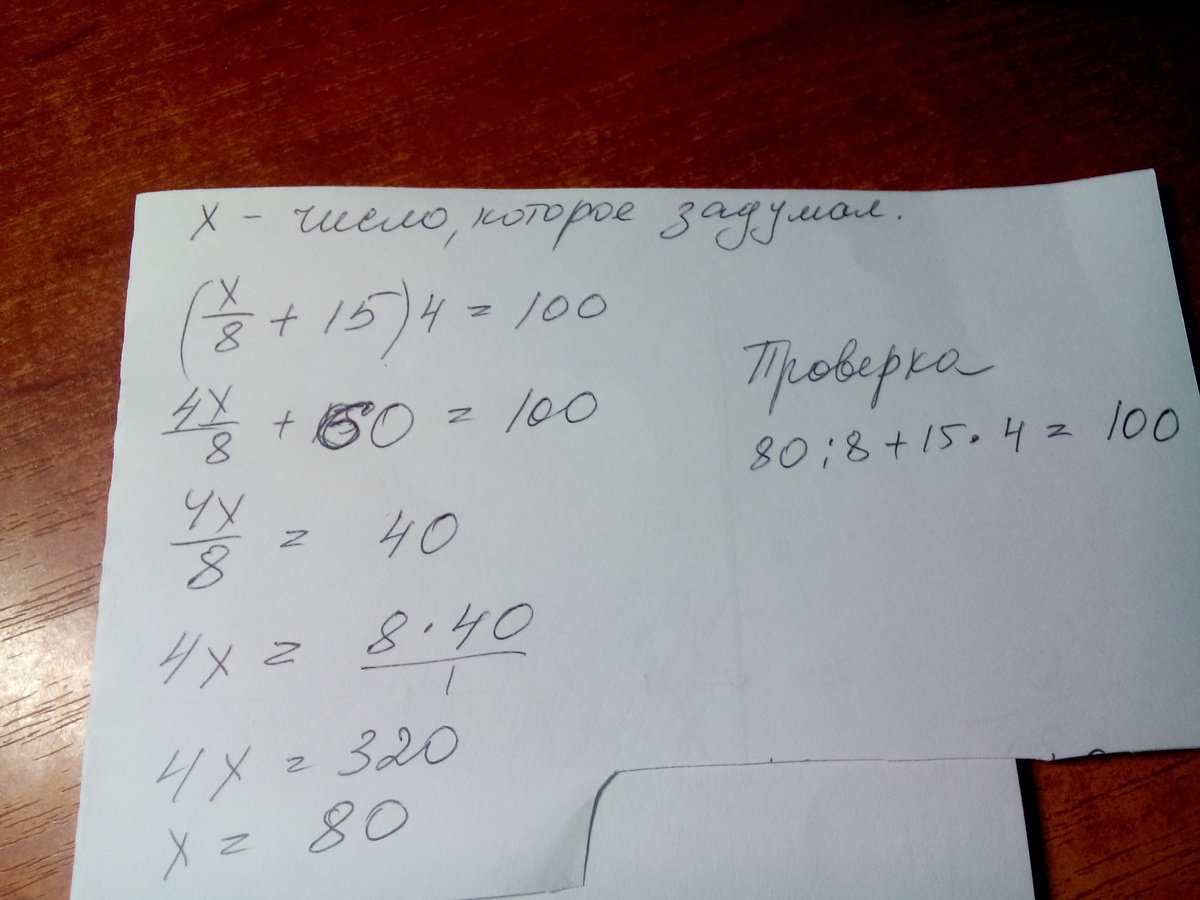 x - число, которое задумал.
(x/8 + 15)4 = 100
4x/8 + 60 = 100
4x/8 = 40
4x = 8·40/1
4x = 320
x = 80
Проверка
80:8+15·4= 100